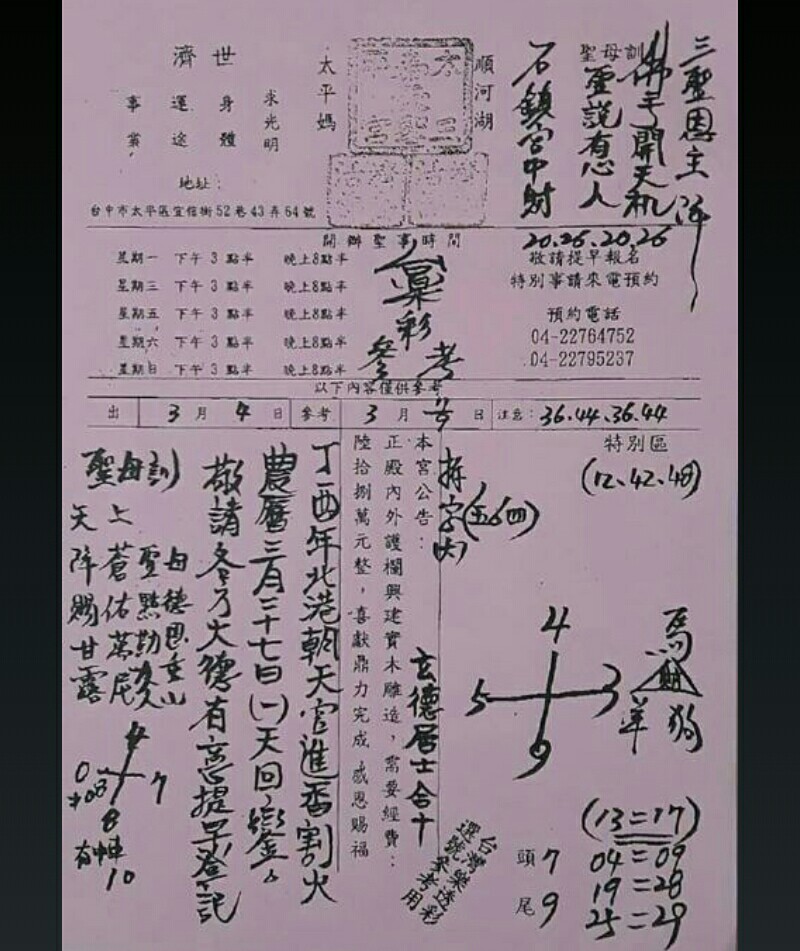 三聖恩主降
佛手開天机
聖母訓
聖說有心人
石鎮宮中財
20.26.20.26
順河湖
太平媽
濟世
求光明
身體
運途
事業
地址：
台中市太平區宜佰街52巷43弄64號
開辦聖事時間
星期一 下午3點半 晚上8點半
星期三 下午3點半 晚上8點半
星期五 下午3點半 晚上8點半
星期六 下午3點半 晚上8點半
星期日 下午3點半 晚上8點半
敬請提早報名
特別事請來電預約
預約電話
04-22764752
04-22795237
彩
參考
以下內容僅供參考
出 3月4日 參考 3月 日 注意：36.44.36.44
特別區
(12.42.48)
拆字
本宮公告：
正殿內外護欄興建實木雕造，需要經費：
陸拾捌萬元整，喜獻鼎力完成 感恩賜福
玄德居士合十
丁酉年北港朝天宮進香割火
農曆三月二十七日(一)天回鑾。
敬請各方大德有意提早登記
聖母訓
上蒼佑萬
天降賜甘露
4
5 3
9
馬
羊 狗
0 7
8
10
(13=17)
04=09
19=28
25=29
頭 7
尾 9
台灣樂透彩
選號參考用